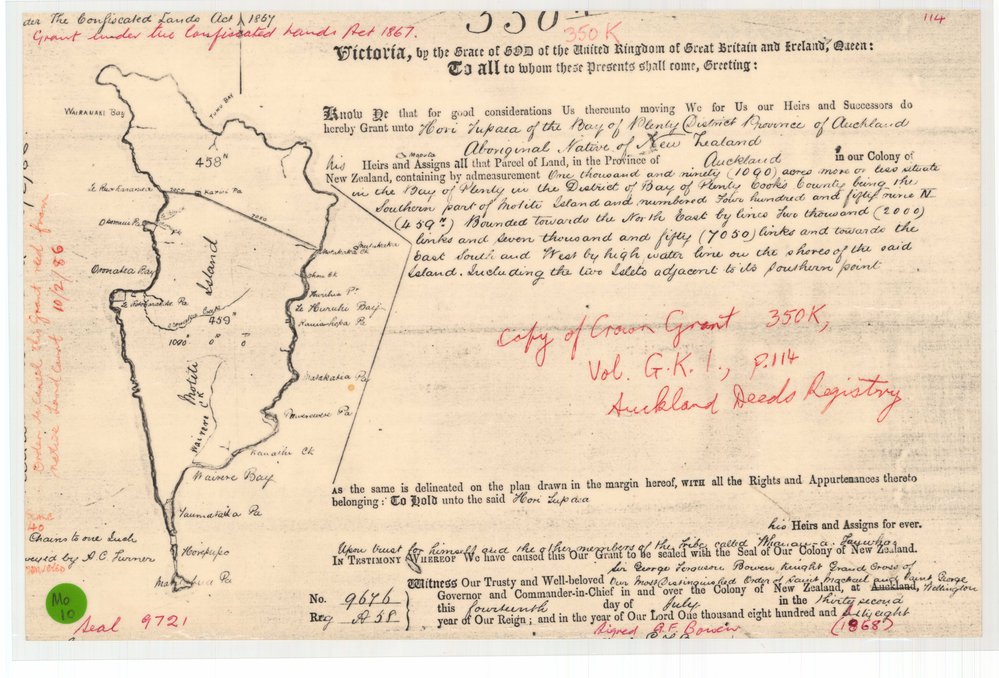 der The Confiscated Lands Act 1867
Grant under the Confiscated Lands Act 1867.
350
350 K
114
Victoria, by the Grace of GOD of the United Kingdom of Great Britain and Ireland, Queen:
To all to whom these Presents shall come, Greeting:
Know Ye that for good considerations Us thereunto moving We for Us our Heirs and Successors do
hereby Grant unto Hori Tupaea of the Bay of Plenty District Province of Auckland
Aboriginal Native of New Zealand
his Heirs and Assigns all that Parcel of Land, in the Province of Auckland in our Colony of
New Zealand, containing by admeasurement One thousand and ninety (1090) acres more or less situate
in the Bay of Plenty in the District of Bay of Plenty Cook's County being the
Southern part of Motiti Island and numbered Four hundred and fifty nine N
(459N) Bounded towards the North East by lines Two thousand (2000)
links and seven thousand and fifty (7050) links and towards the
East South and West by high water line on the shores of the said
island. Including the two Islets adjacent to its Southern point
Copy of Crown Grant 350K,
Vol. G.K.1., p.114
Auckland Deeds Registry
As the same is delineated on the plan drawn in the margin hereof, WITH all the Rights and Appurtenances thereto
belonging: To Hold unto the said Hori Tupaea
his Heirs and Assigns for ever.
Upon trust for himself and the other members of the Tribe called Whanau a
In Testimony Whereof We have caused this Our Grant to be sealed with the Seal of Our Colony of New Zealand.
Sir George Ferguson Bowen Knight Grand Cross of
Witness Our Trusty and Well-beloved Our Most Distinguished Order of Saint Michael and Saint George
Governor and Commander-in-Chief in and over the Colony of New Zealand, at Auckland, Wellington
this fourteenth day of July in the thirty second
year of Our Reign; and in the year of Our Lord One thousand eight hundred and sixty eight
(1868)
Signed G.F. Bowen
No. 9676
Reg A 58
Wairanaki Bay
Tumu Bay
458N
Karui Pa
2000
7050
Otamaua Pa
Orongatea Bay
Island
459N
1090 0 0
Motiti
Te Huruhi Bay
Matakatia Pa
Pa
Wairere Ck
Wairere Bay
Taumataika Pa
Horepupo
Pa
Order to Cancel this Grant recd from
Native Land Court 10/2/86
Chains to one Inch
eyed by A.C. Turner
Mo
10
Seal 9721